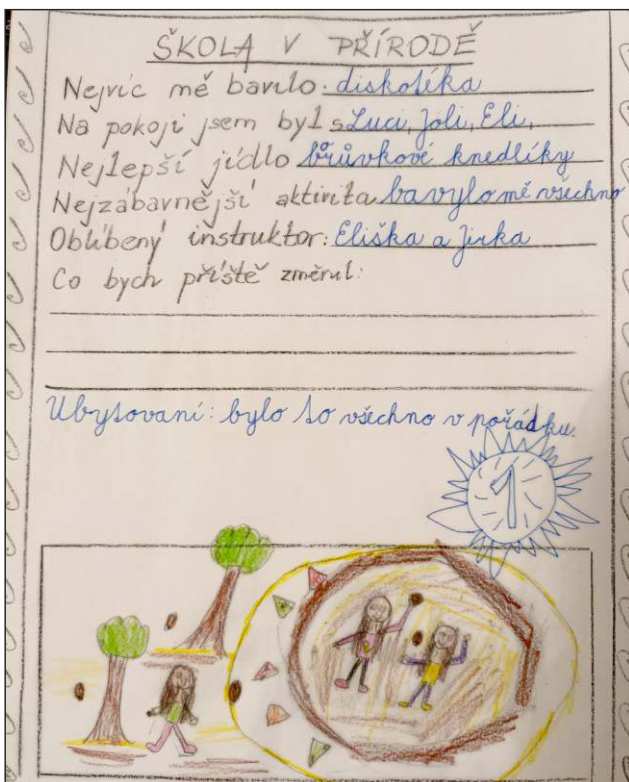 ŠKOLA V PŘÍRODĚ
Nejvíc mě bavilo: diskotéka
Na pokoji jsem byl s Luci, Joli, Eli,
Nejlepší jídlo brůvkové knedlíky
Nejzábavnější aktivita bavylo mě všechno
Oblíbený instruktor: Eliška a Jirka
Co bych příště změnil:
Ubytovaní: bylo to všechno v pořádku.
1